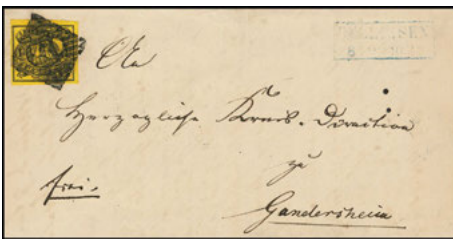 An
Herzogliche Kreis-Direction
zu
frei.
Gandersheim